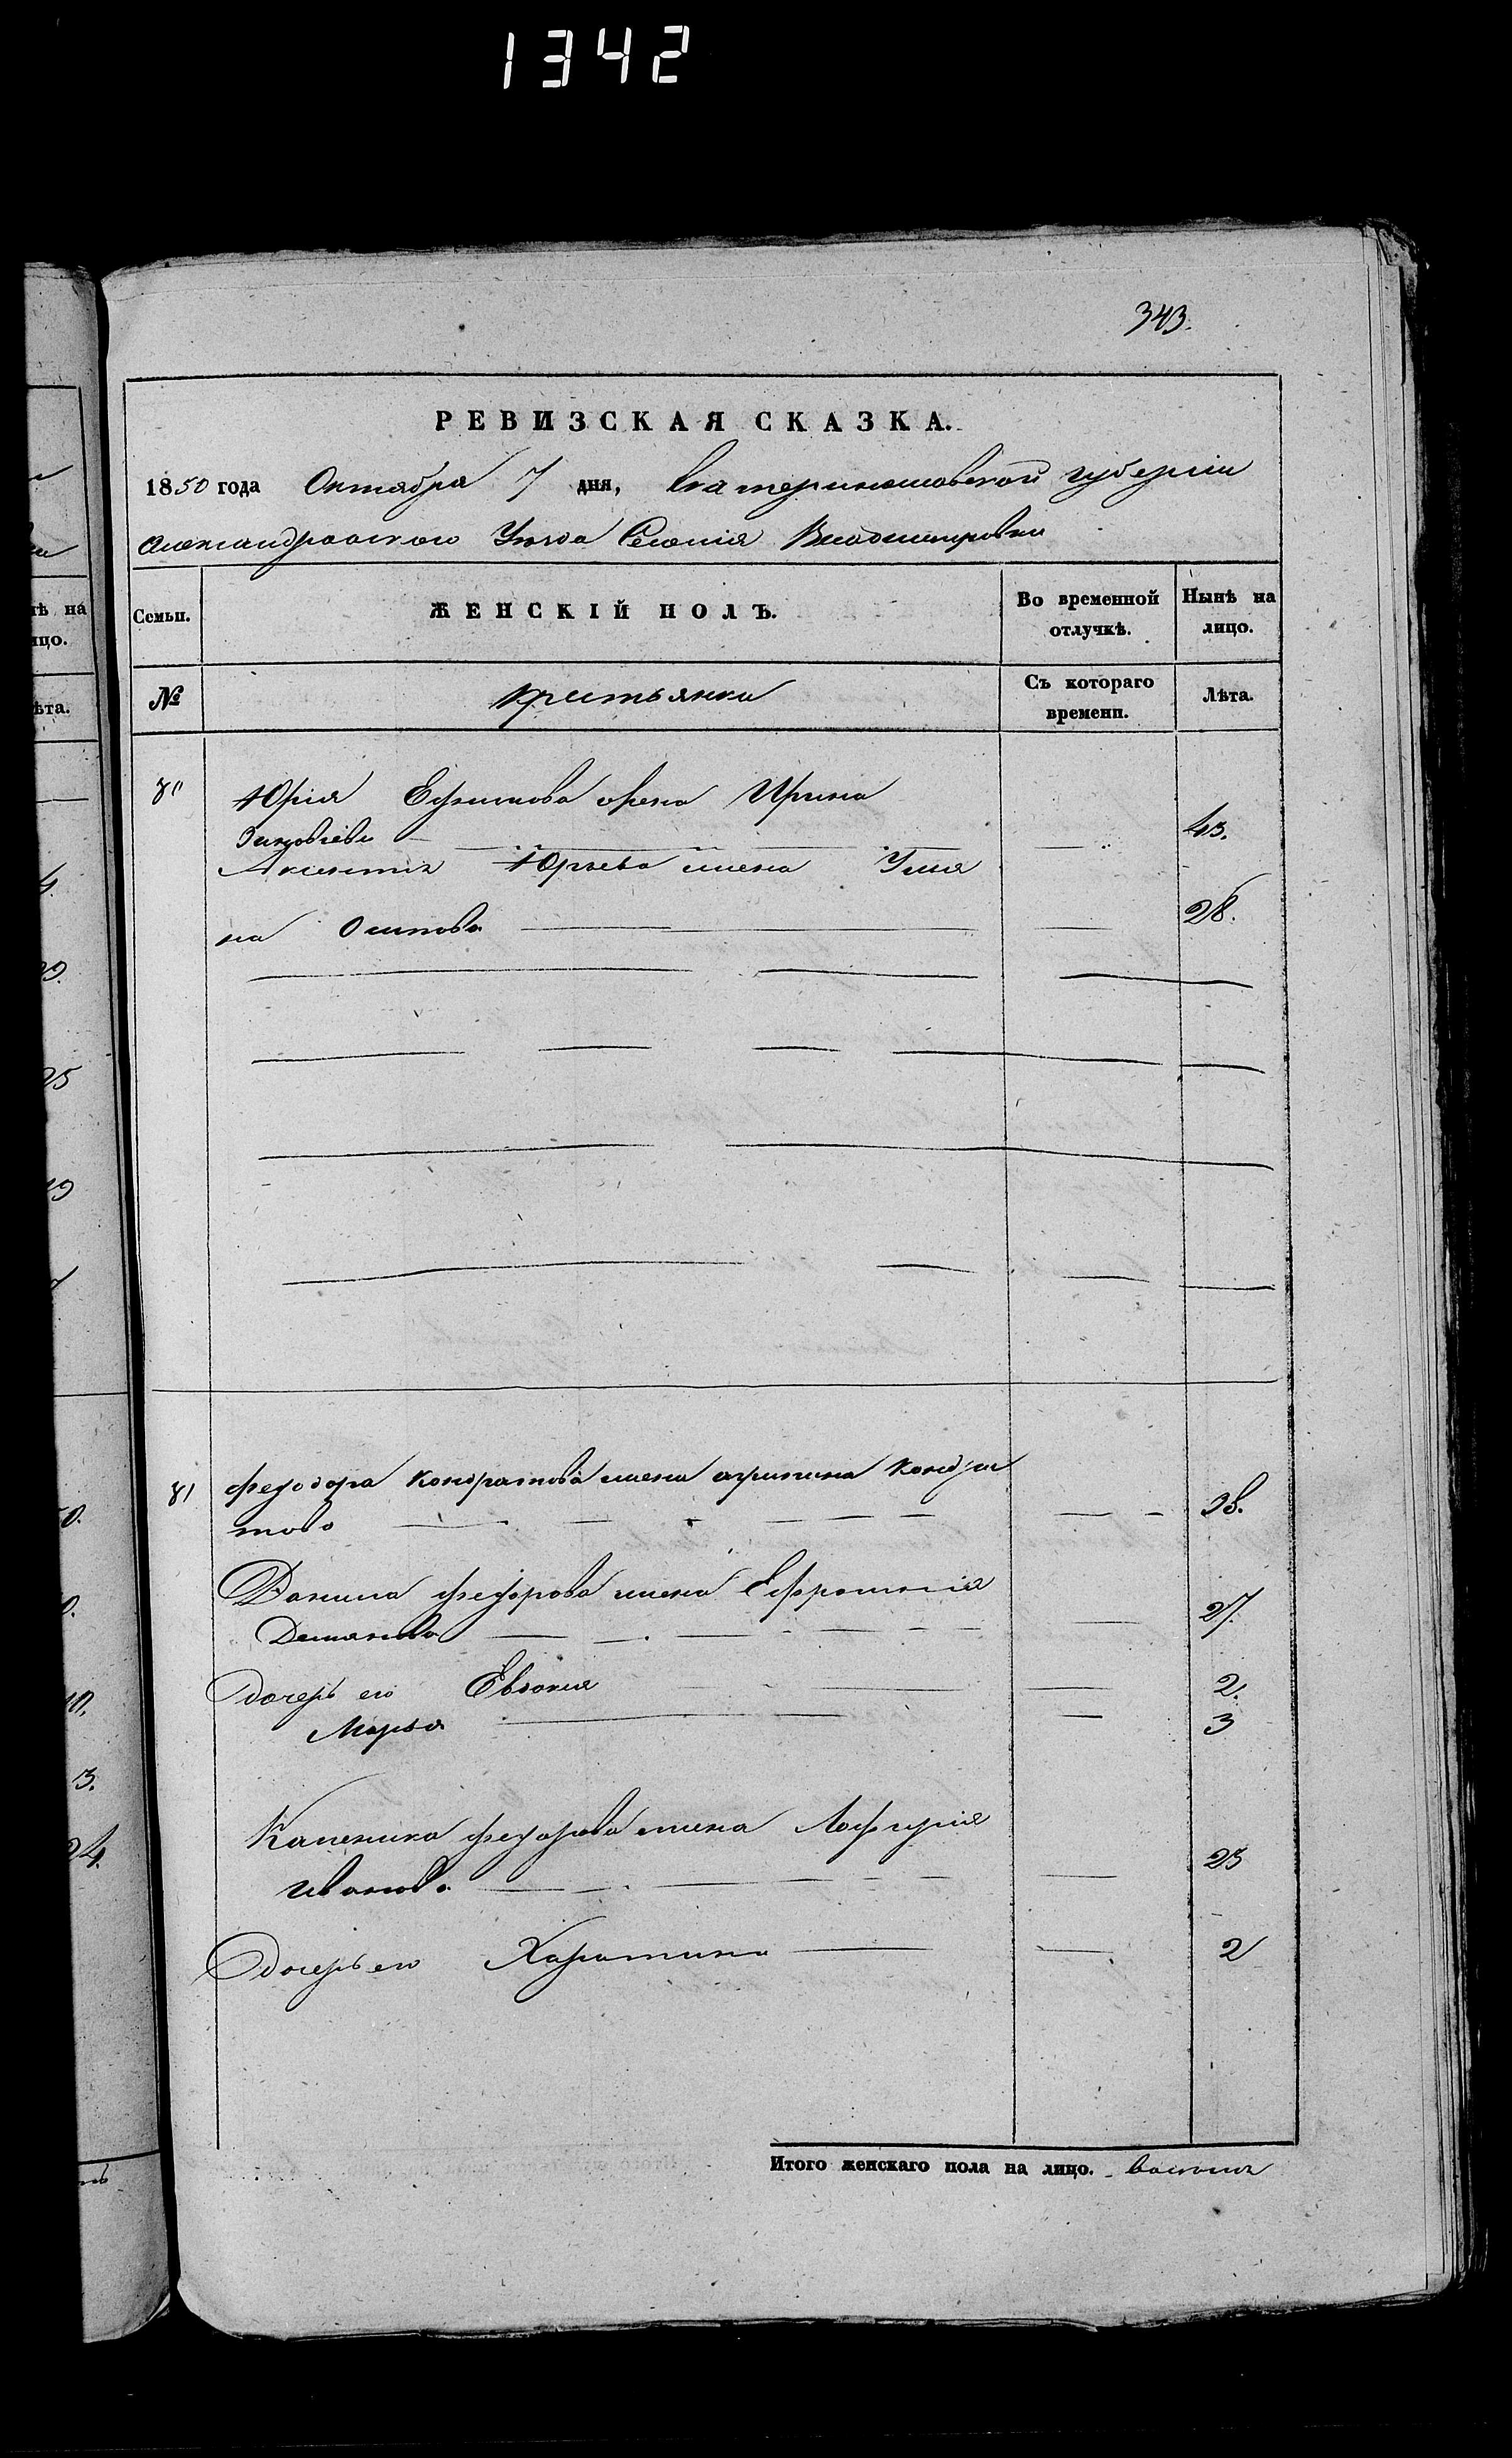 1342
343.
РЕВИЗСКАЯ СКАЗКА.
1850 года Октября 7 дня, Екатеринославской губерніи
Александровского Уезда Селенія Владимировки
Семьи. ЖЕНСКІЙ ПОЛЪ. Во временной отлучкѣ. Нынѣ на лицо.
№ крестьянка Съ котораго времени. Лѣта.
80 Юрія Ефимова жена Ирина
Зиновіева 45.
Аксентія Юрьева жена Улия
на Осипова 28.
81 Феодора Кондратова жена агрипина Кондра
това 38.
Данила Федорова жена Ефросинія
Демянова 27.
дочерь его Евдокия 2.
Марья 3
Каленика Федорова жена
Иванова 25
дочерь его Харатина 2
Итого женскаго пола на лицо.
нѣ на
ицо.
ѣта.
4.
25
19
3.
24.